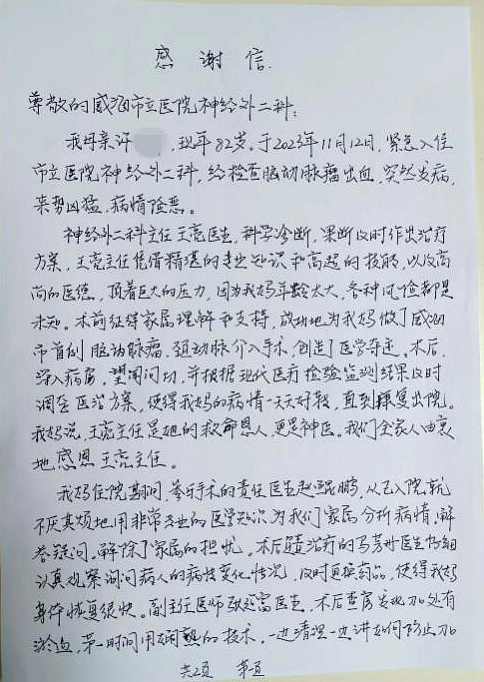 感谢信.
尊敬的威海市立医院神经外二科:
我母亲许 , 现年82岁, 于2023年11月12日, 紧急入住
市立医院神经外二科, 经检查脑动脉瘤出血, 突然发病,
来势凶猛, 病情险恶。
神经外二科主任王亮医生, 科学诊断, 果断及时作出治疗
方案, 王亮主任凭借精湛的专业知识和高超的技能, 以及高
尚的医德, 顶着巨大的压力, 因为我妈年龄太大, 各种风险都是
未知。术前征得家属理解和支持, 成功地为我妈做了威海
市首例脑动脉瘤、颈动脉介入手术, 创造了医学奇迹。术后,
深入病房, 望闻问切, 并根据现代医疗检验监测结果及时
调整医治方案, 使得我妈的病情一天天好转, 直到康复出院。
我妈说, 王亮主任是她的救命恩人, 更是神医。我们全家人由衷
地感恩王亮主任。
我妈住院期间, 参与手术的责任医生赵鲲鹏, 从入院就
不厌其烦地用非常专业的医学知识为我们家属分析病情, 解
答疑问, 解除了家属的担忧。术后负责治疗的马芳州医生仔细
认真观察询问病人的病情变化情况, 及时更换药品, 使得我妈
身体恢复很快。副主任医师 医生, 术后查房发现刀处有
淤血, 第一时间用娴熟的技术, 一边清理一边讲如何防止刀
共2页 第1页